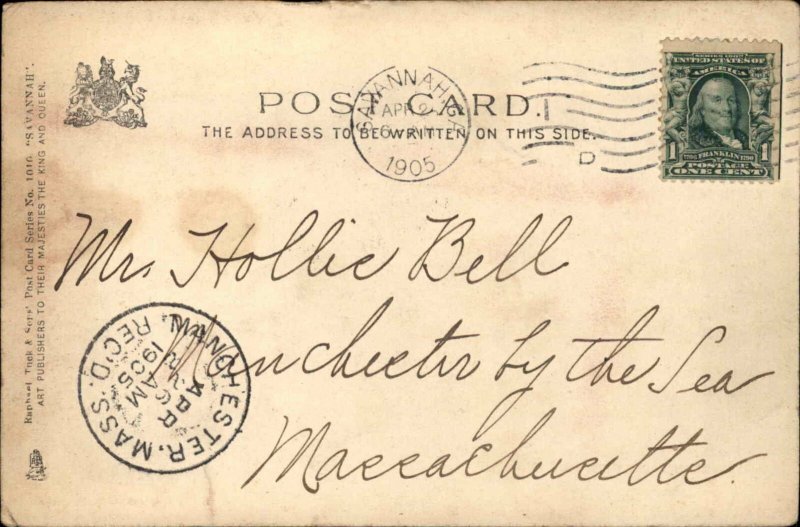 POST CARD.
THE ADDRESS TO BE WRITTEN ON THIS SIDE.
SAVANNAH, GA
APR 2
6
1905
D
SERIES 1902
UNITED STATES OF
AMERICA
1706 FRANKLIN 1790
1 POSTAGE 1
ONE CENT
Raphael Tuck & Sons' Post Card Series No. 1016 "SAVANNAH".
ART PUBLISHERS TO THEIR MAJESTIES THE KING AND QUEEN.
Mr. Hollie Bell
Manchester by the Sea
Massachusetts.
MANCHESTER, MASS.
AM
1905
REC'D.